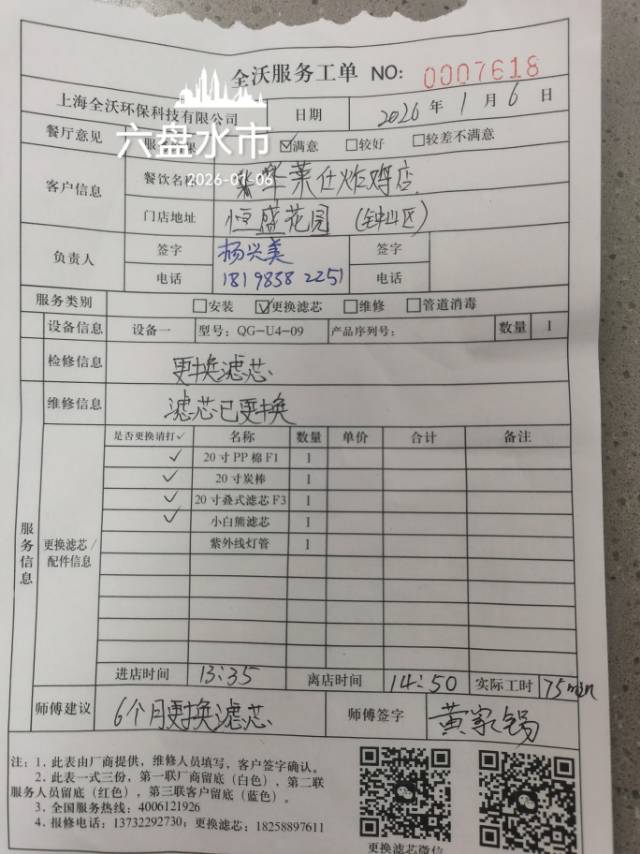 全沃服务工单 NO: 0007618
上海全沃环保科技有限公司 日期 2026年1月6日
六盘水市
2026-01-06
餐厅意见 ☑满意 □较好 □较差不满意
客户信息 餐饮名称 莱仕炸鸡店
门店地址 恒盛花园 (钟山区)
负责人 签字 杨兴美 签字
电话 18198582251 电话
服务类别 □安装 ☑更换滤芯 □维修 □管道消毒
设备信息 设备一 型号: QG-U4-09 产品序列号: 数量 1
检修信息 更换滤芯
维修信息 滤芯已更换
服务信息
更换滤芯/配件信息
是否更换请打✓ 名称 数量 单价 合计 备注
✓ 20寸PP棉F1 1
✓ 20寸炭棒 1
✓ 20寸叠式滤芯F3 1
✓ 小白熊滤芯 1
紫外线灯管 1
进店时间 13:35 离店时间 14:50 实际工时 75min
师傅建议 6个月更换滤芯 师傅签字 黄家锡
注: 1、此表由厂商提供,维修人员填写,客户签字确认。
2、此表一式三份,第一联厂商留底(白色),第二联
服务人员留底(红色),第三联客户留底(蓝色)。
3、全国服务热线: 4006121926
4、报修电话: 13732292730; 更换滤芯: 18258897611
更换滤芯微信